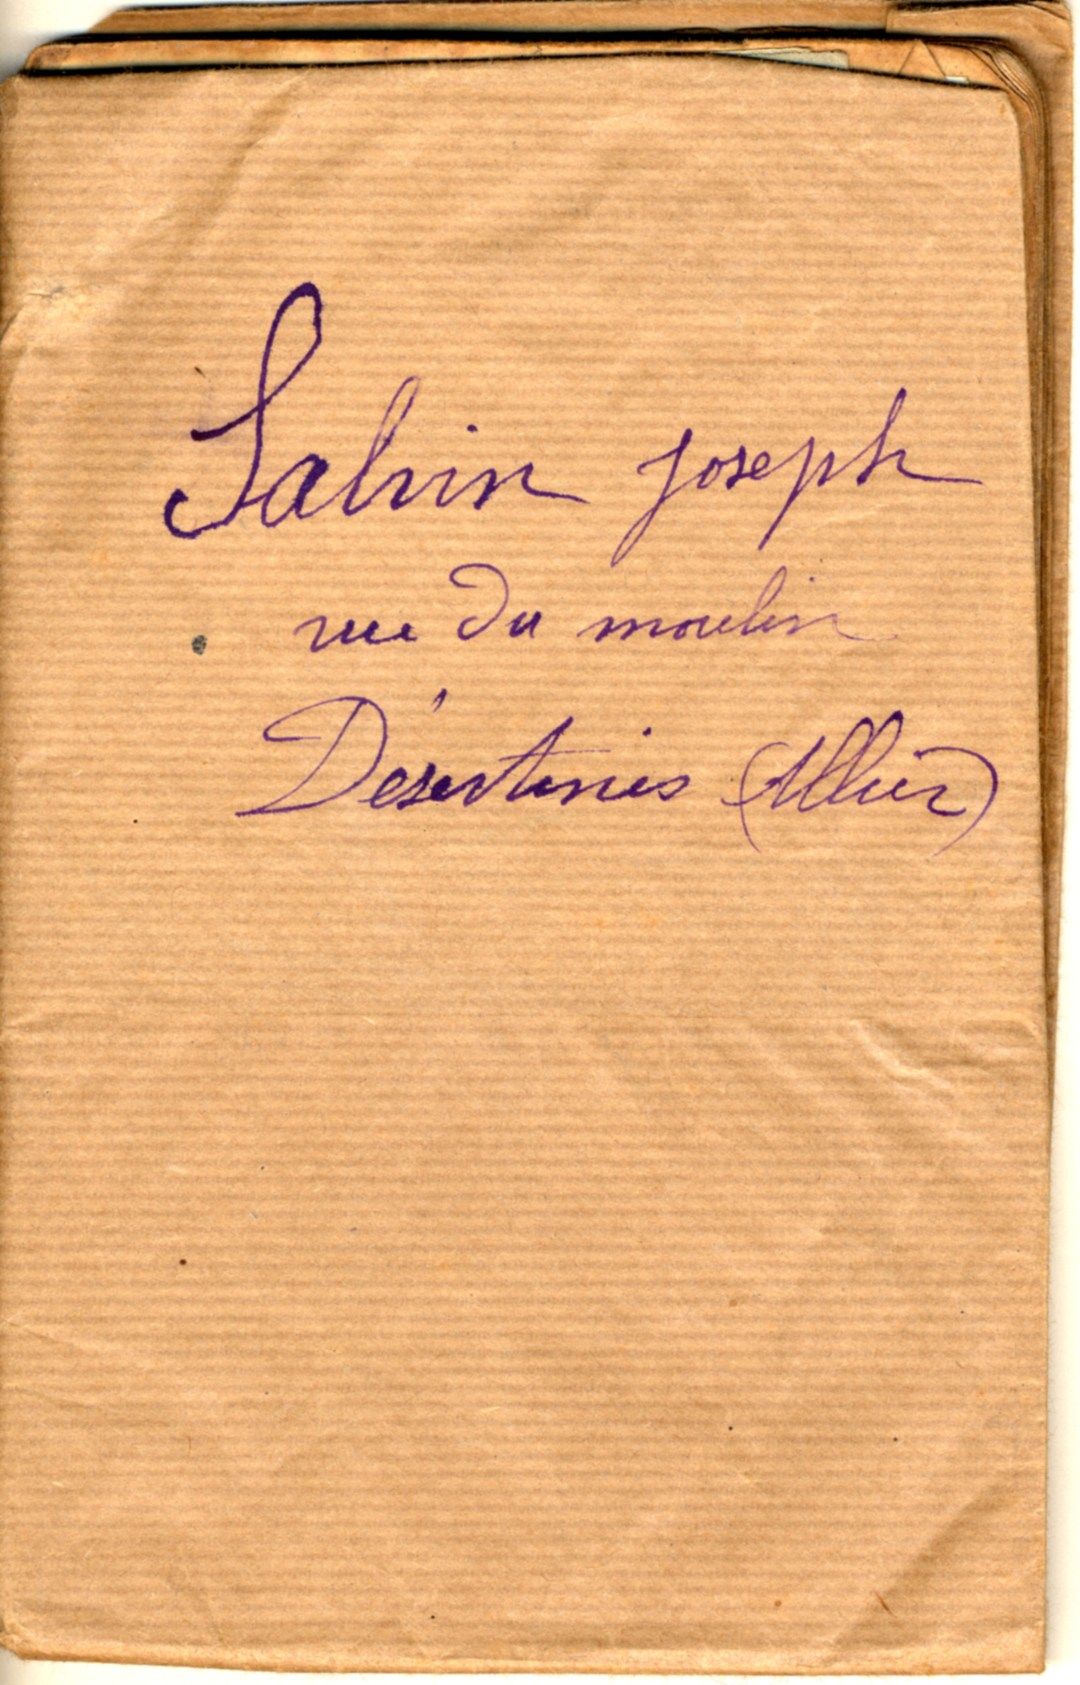 Salvin joseph
rue du moulin
Désertines (Allier)